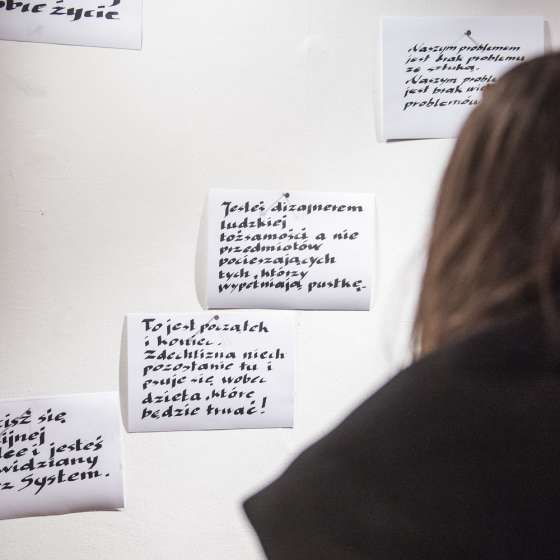 obie życie
Naszym problemem
jest brak problemu
ze sztuką.
Naszym
jest brak
problemów
Jesteś dizajnerem
ludzkiej
tożsamości a nie
przedmiotów
pocieszających
tych, którzy
wypełniają pustkę.
To jest początek
i koniec.
Zdechlizna niech
pozostanie tu i
psuje się wobec
dzieła, które
będzie trwać!
się
jesteś
widziany
System.